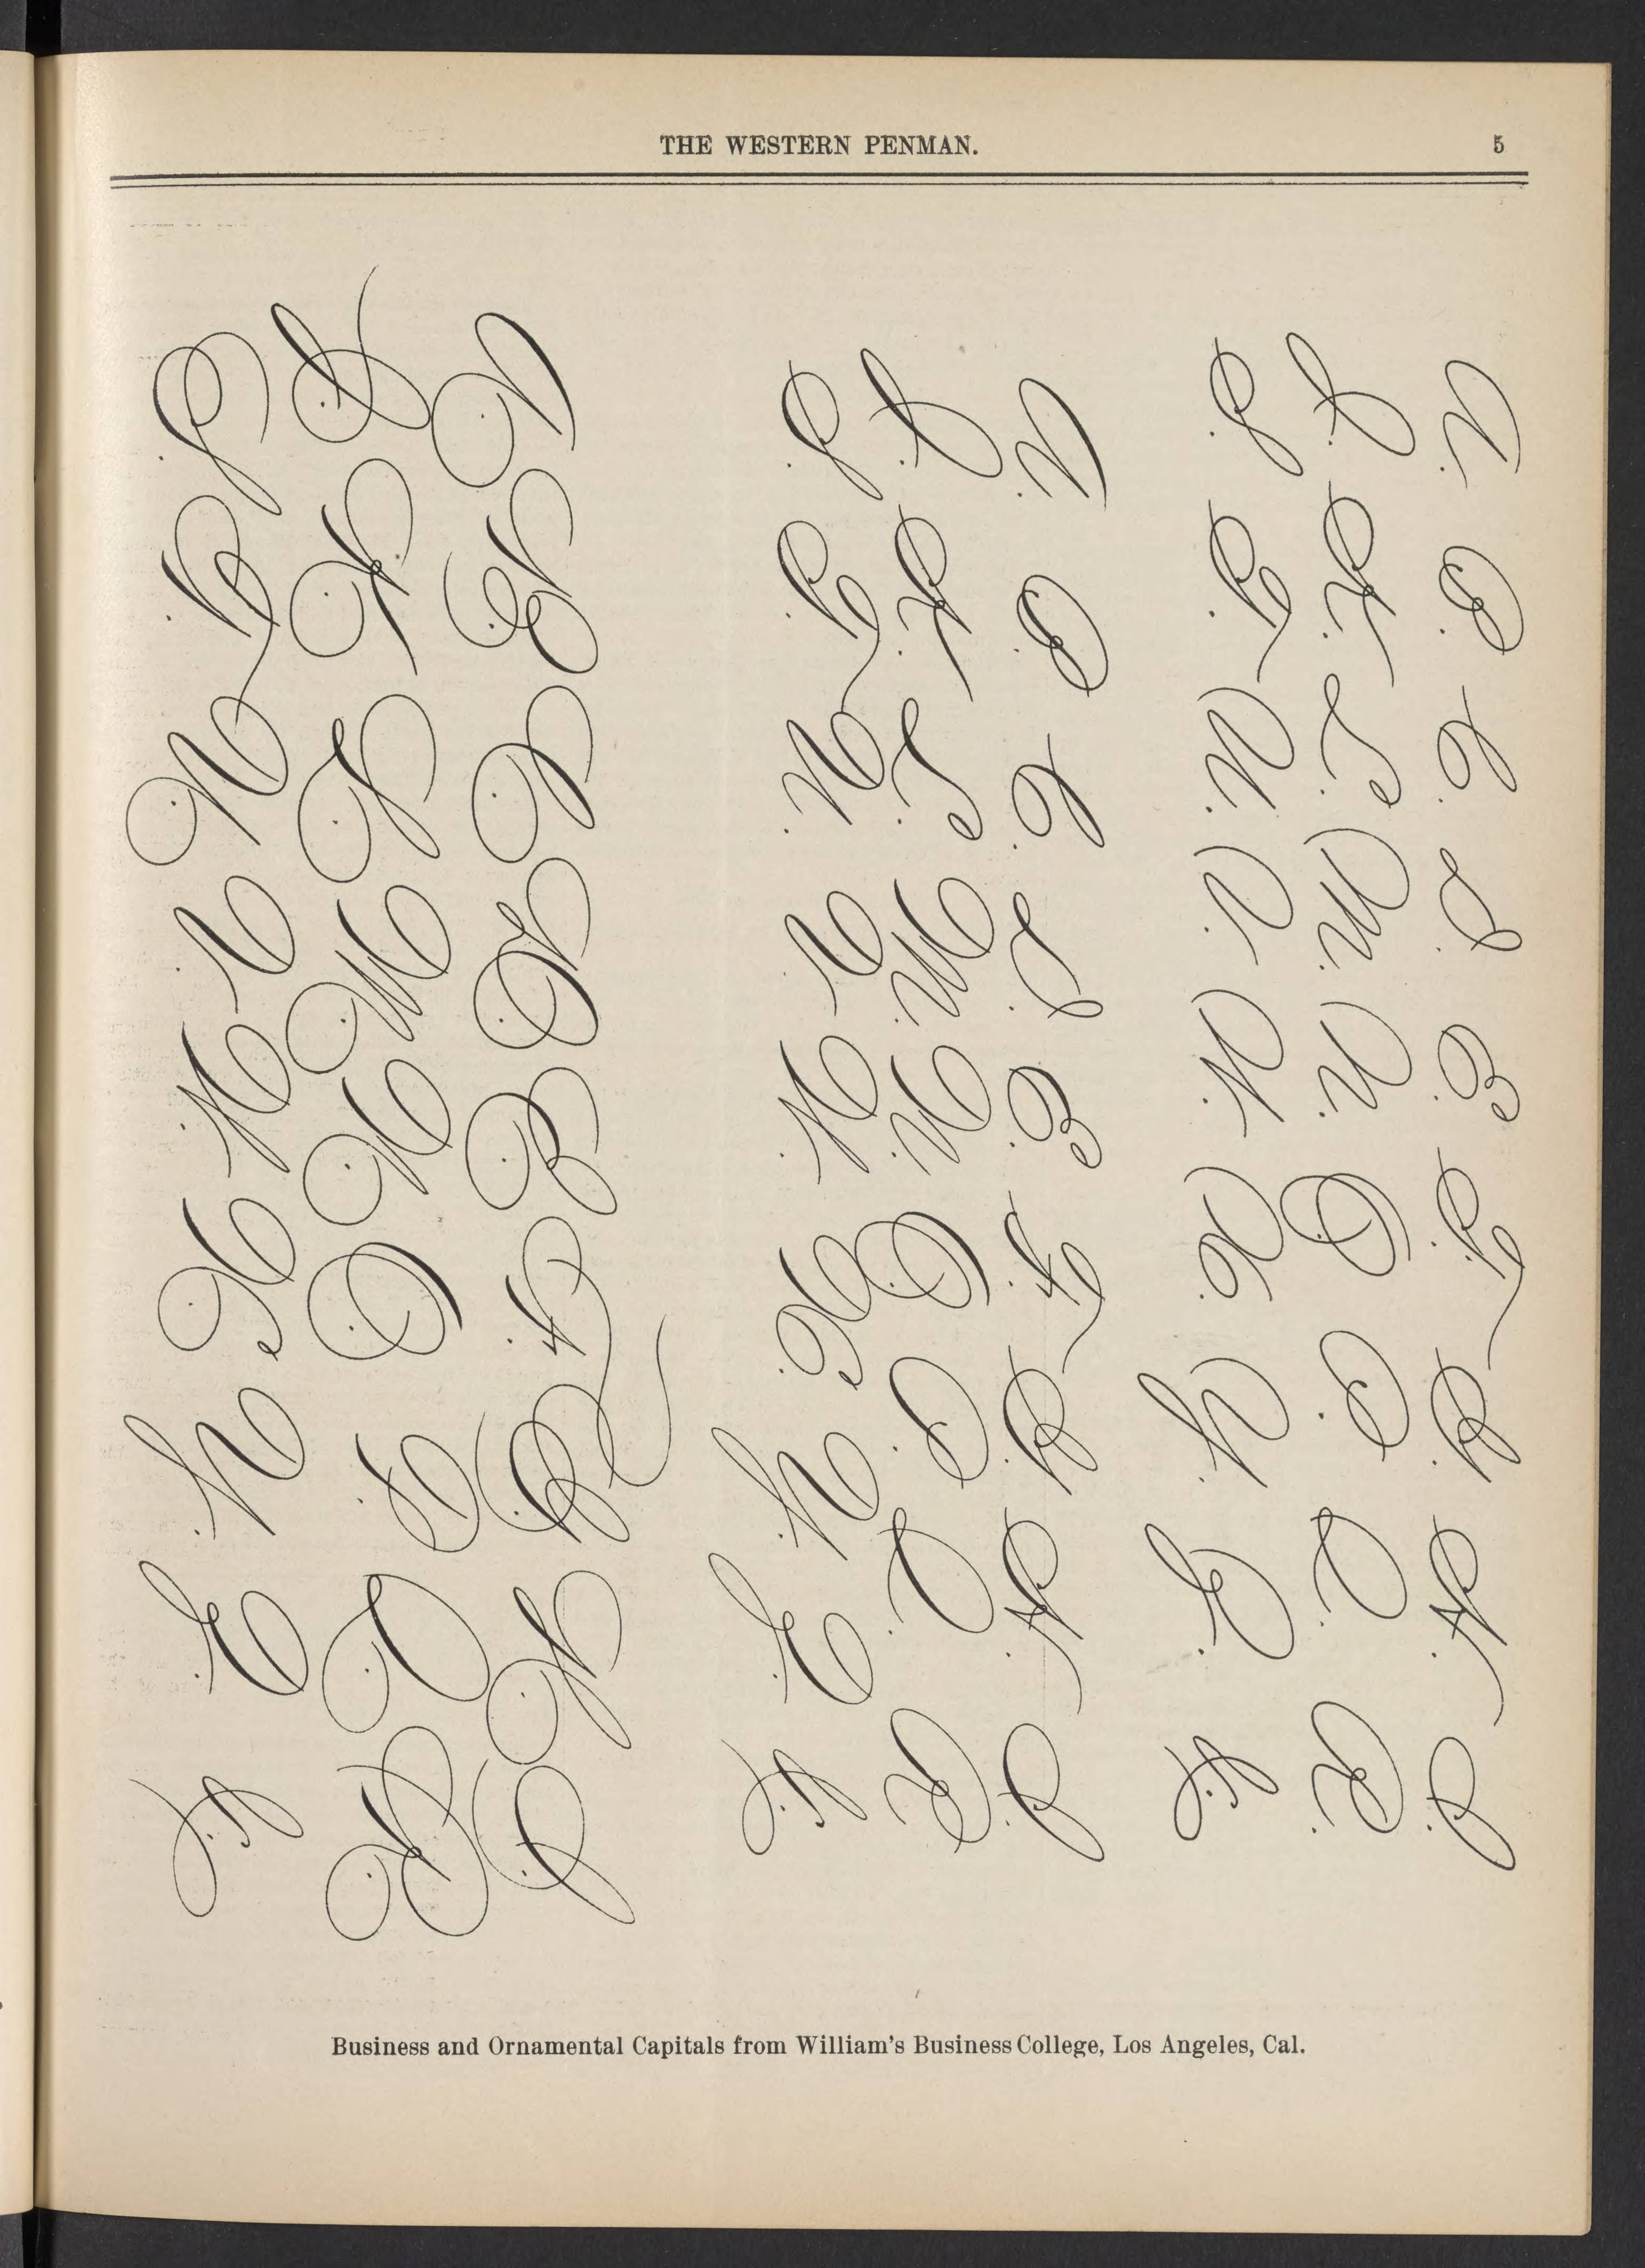 THE WESTERN PENMAN. 5
A B C D E F G H I
J K L M N O P Q R
S T U V W X Y Z &
A B C D E F G H I
J K L M N O P Q R
S T U V W X Y Z &
A B C D E F G H I
J K L M N O P Q R
S T U V W X Y Z &
Business and Ornamental Capitals from William's Business College, Los Angeles, Cal.